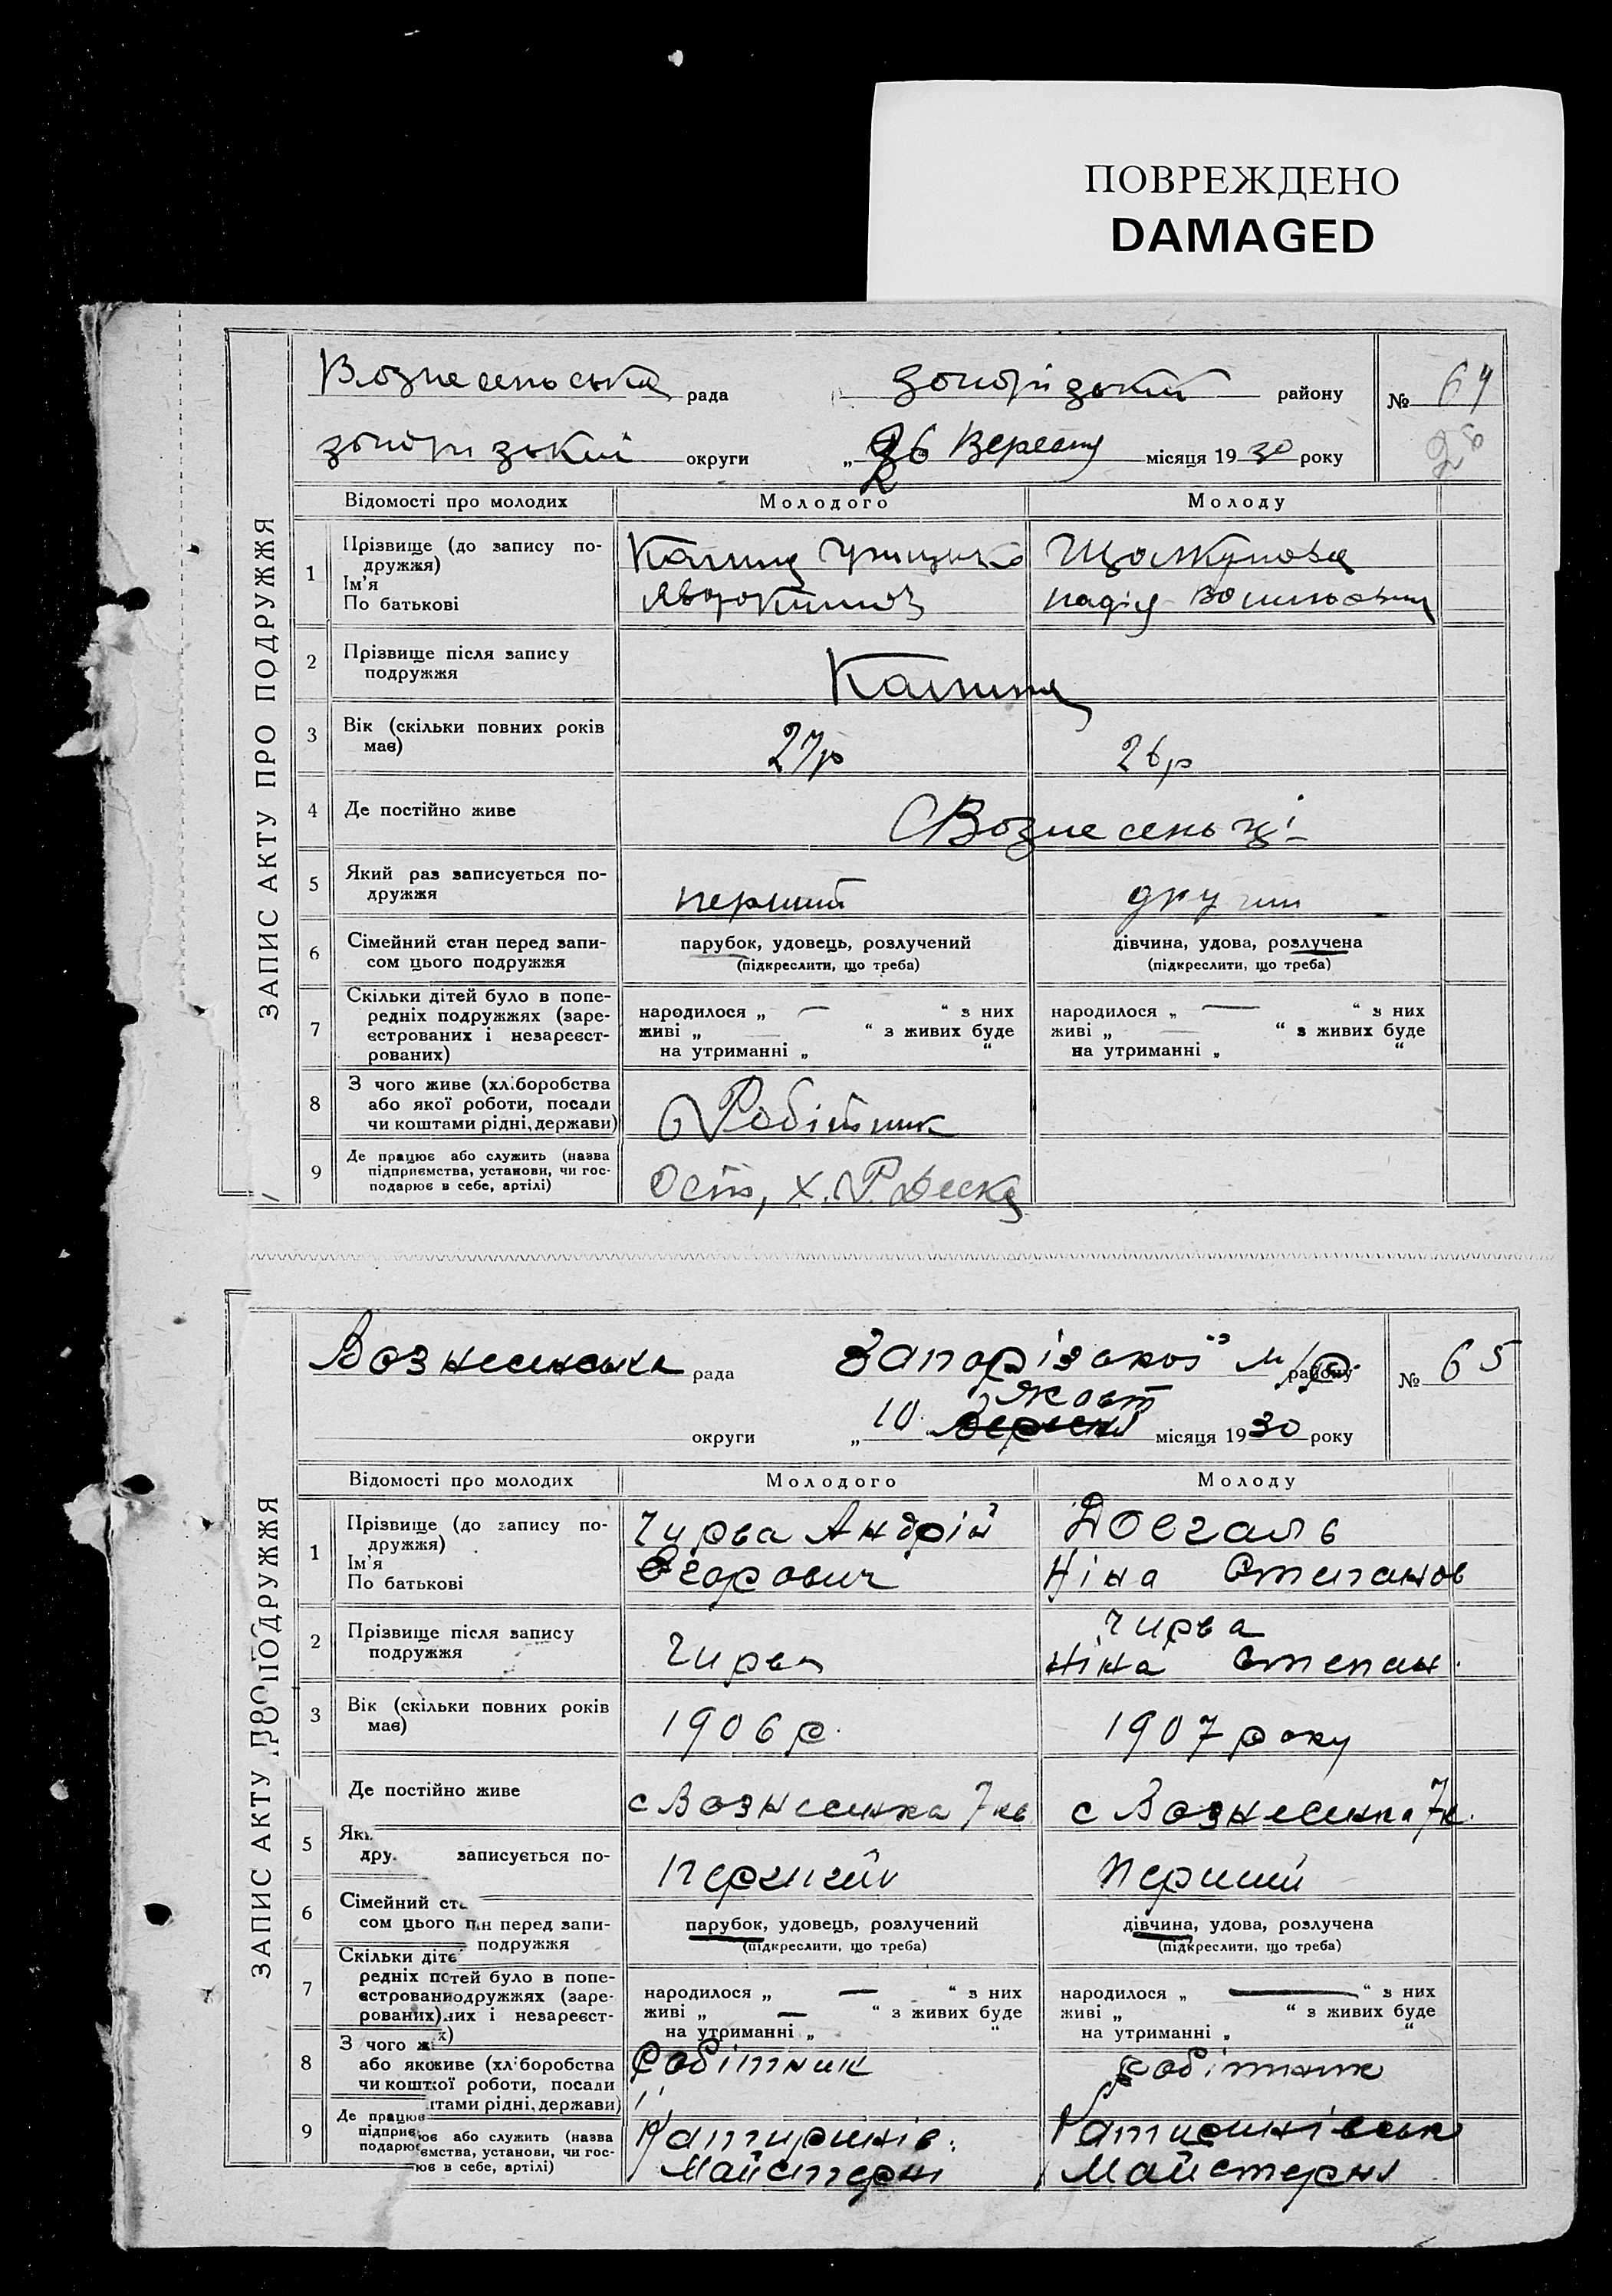 ПОВРЕЖДЕНО
DAMAGED
ЗАПИС АКТУ ПРО ПОДРУЖЖЯ
Вознесеньська рада району № 64
округи „26 Вересня місяця 1930 року 28
Відомості про молодих Молодого Молоду
1 Прізвище (до запису по-
дружжя)
Ім'я
По батькові
Надія
2 Прізвище після запису
подружжя
Калина
3 Вік (скільки повних років
має) 27р 26р
4 Де постійно живе С Вознесеньці
5 Який раз записується по-
дружжя перший другий
6 Сімейний стан перед запи-
сом цього подружжя
парубок, удовець, розлучений дівчина, удова, розлучена
(підкреслити, що треба) (підкреслити, що треба)
7 Скільки дітей було в попе-
редніх подружжях (заре-
єстрованих і незареєст-
рованих)
народилося „ — “ з них народилося „ — “ з них
живі „ — “ з живих буде живі „ — “ з живих буде
на утриманні „ “ на утриманні „ “
8 З чого живе (хліборобства
або якої роботи, посади
чи коштами рідні, держави)
Робітник
9 Де працює або служить (назва
підприємства, установи, чи гос-
подарює в себе, артілі)
ЗАПИС АКТУ ПРО ПОДРУЖЖЯ
Вознесенська рада Запорізької м/р. району № 65
Жовт
округи „10“ Вересня місяця 1930 року
Відомості про молодих Молодого Молоду
1 Прізвище (до запису по-
дружжя)
Ім'я
По батькові
Чирва Андрій Довгаль
Єгорович Ніна Степанов
2 Прізвище після запису
подружжя
Чирва
Чирва Ніна Степан.
3 Вік (скільки повних років
має) 1906 р. 1907 року
Де постійно живе с Вознесенка 7 кв с Вознесенка 7 к.
5 Яки
дру. записується по-
перший перший
6 Сімейний ста
сом цього ан перед запи-
подружжя
парубок, удовець, розлучений дівчина, удова, розлучена
(підкреслити, що треба) (підкреслити, що треба)
7 Скільки діте
редніх потей було в попе-
єстрованиодружжях (заре-
рованих).них і незареєст-
х)
народилося „ — “ з них народилося „ — “ з них
живі „ — “ з живих буде живі „ “ з живих буде
на утриманні „ “ на утриманні „ “
8 З чого ж
або якоживе (хліборобства
чи коштої роботи, посади
тами рідні, держави)
робітник робітник
9 Де працює
підприє ює або служить (назва
подарює ємства, установи, чи гос-
ює в себе, артілі)
Майстерні Майстерні